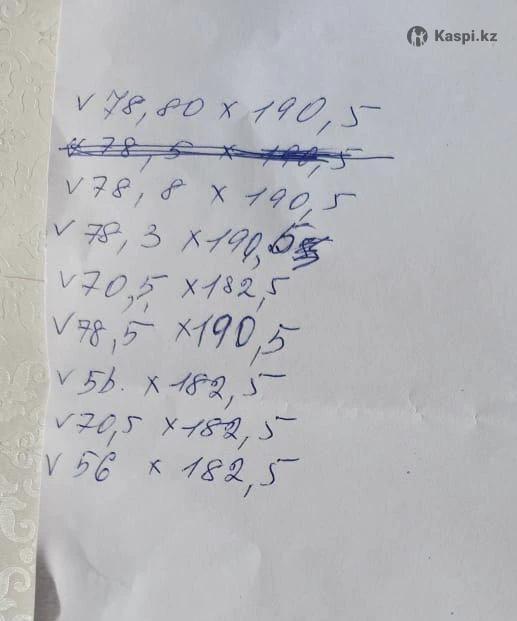 Kaspi.kz
v 78,80 x 190,5
v 78,5 x 190,5
v 78,8 x 190,5
v 78,3 x 190,5
v 70,5 x 182,5
v 78,5 x 190,5
v 56. x 182,5
v 70,5 x 182,5
v 56 x 182,5